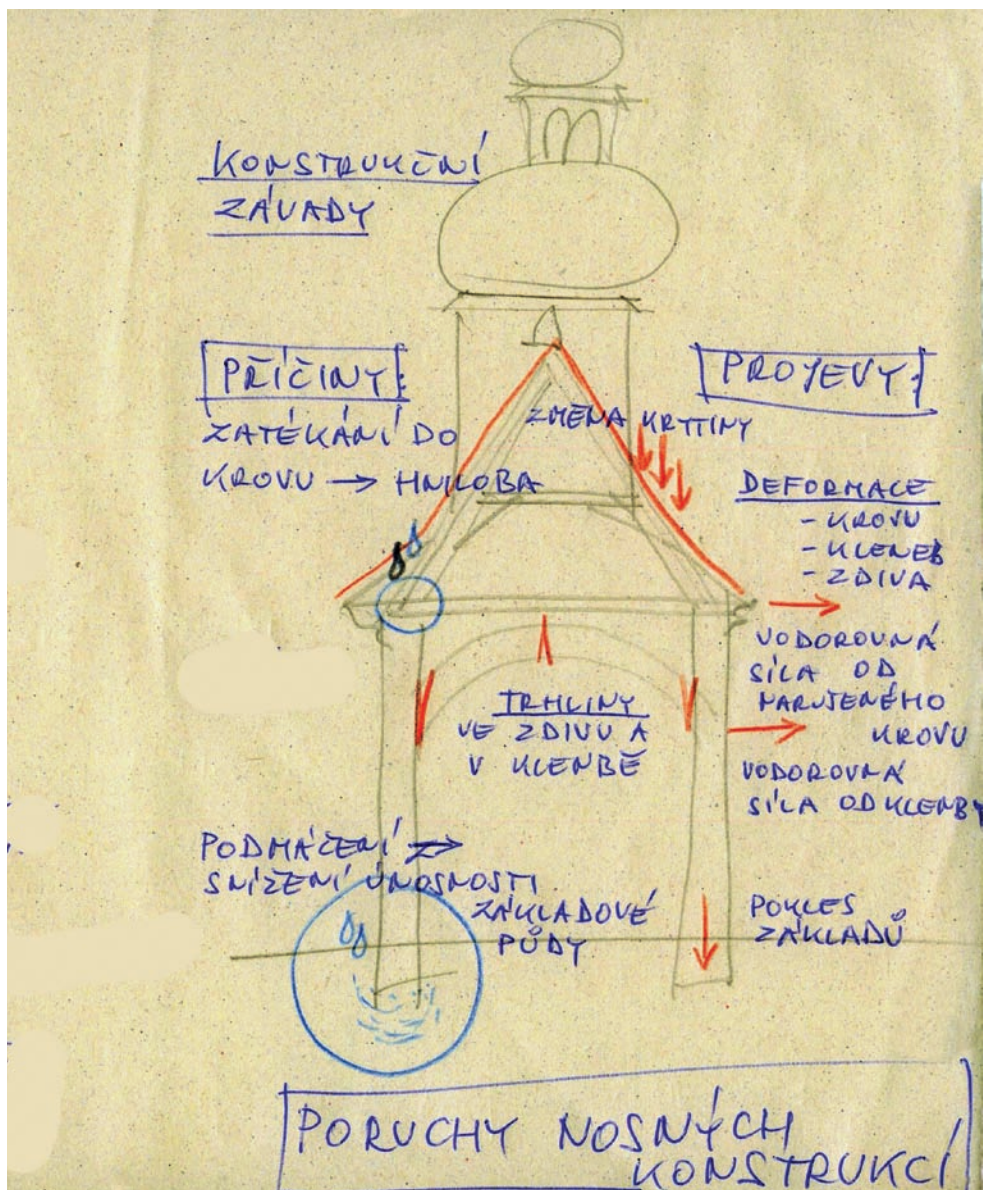 KONSTRUKČNÍ
ZÁVADY
PŘÍČINY:
ZATÉKÁNÍ DO
KROVU → HNILOBA
ZMĚNA KRYTINY
PROJEVY:
DEFORMACE
- KROVU
- KLENEB
- ZDIVA
VODOROVNÁ
SÍLA OD
NARUŠENÉHO
KROVU
VODOROVNÁ
SÍLA OD KLENBY
TRHLINY
VE ZDIVU A
V KLENBĚ
PODMÁČENÍ →
SNÍŽENÍ ÚNOSNOSTI
ZÁKLADOVÉ
PŮDY
POKLES
ZÁKLADŮ
PORUCHY NOSNÝCH
KONSTRUKCÍ